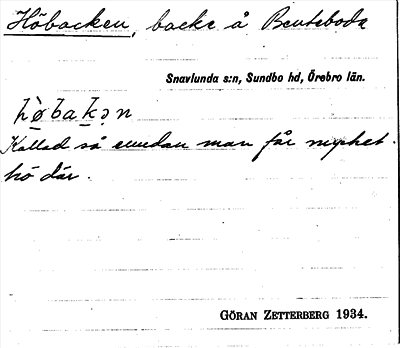 Höbacken, backe å Benteboda
Snavlunda s:n, Sundbo hd, Örebro län.
hø̀bakən
Kallad så emedan man får mycket
hö där.
GÖRAN ZETTERBERG 1934.